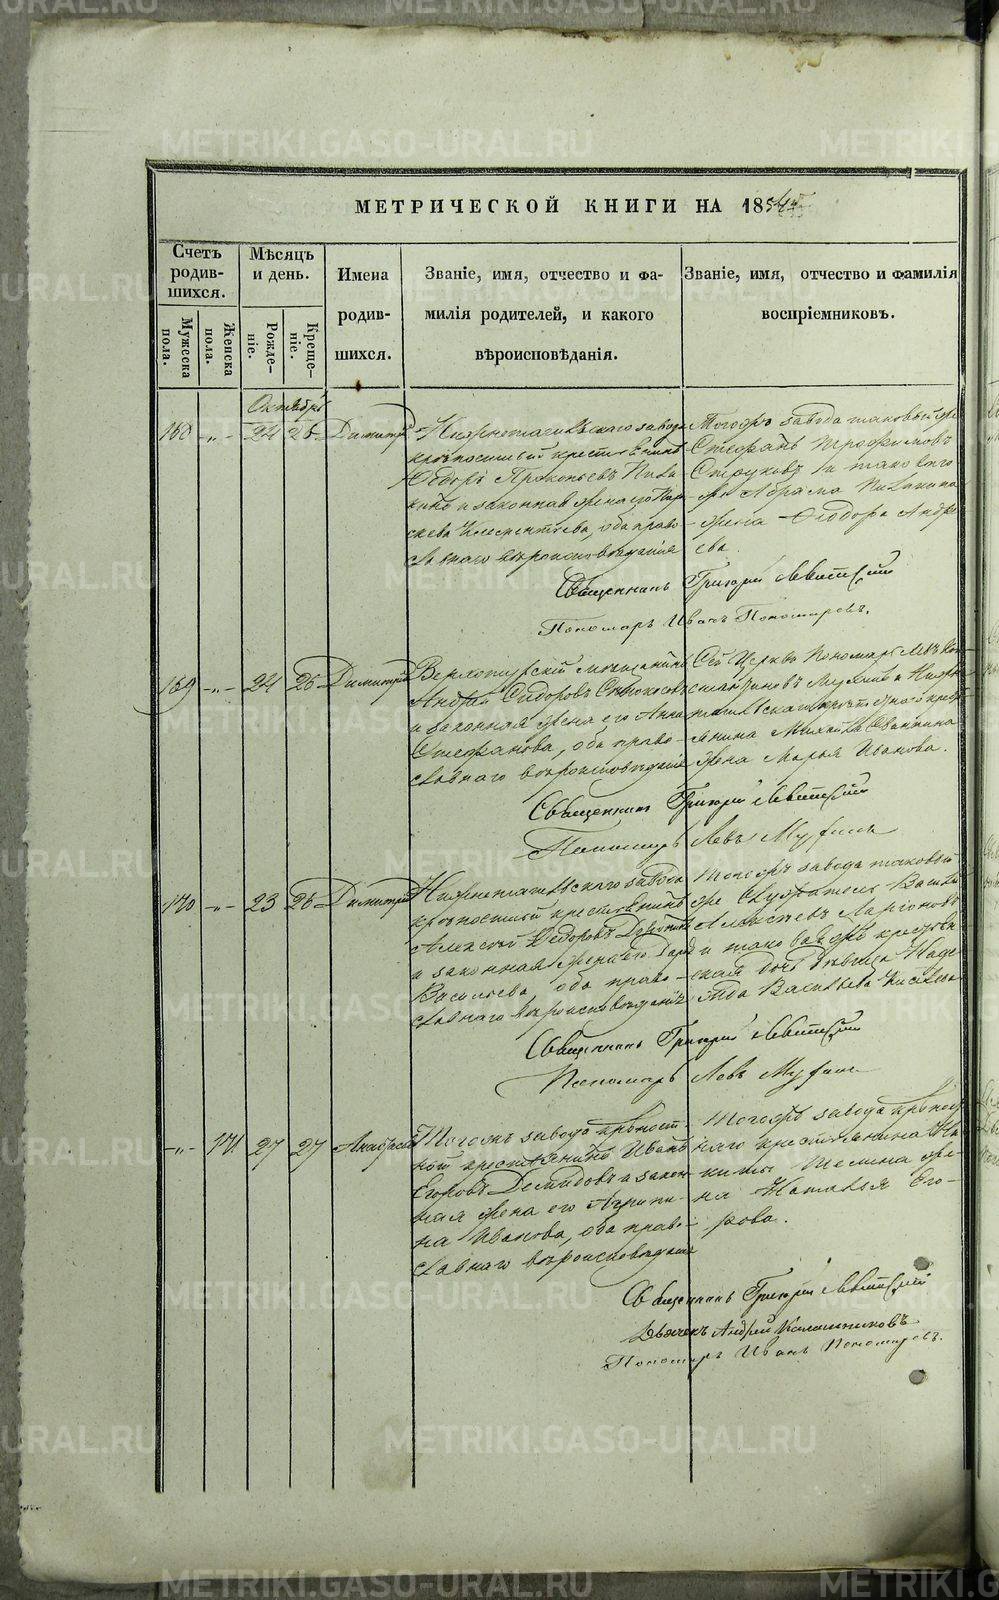 METRIKI.GASO-URAL.RU
МЕТРИЧЕСКОЙ КНИГИ НА 185
Счетъ родив-шихся.
Мужеска пола.
Женска пола.
Мѣсяцъ и день.
Рожде-ніе.
Креще-ніе.
Имена родив-шихся.
Званіе, имя, отчество и фа-
милія родителей, и какого
вѣроисповѣданія.
Званіе, имя, отчество и фамилія
воспріемниковъ.
Октябрь
168 -„- 24 25 Димитрій
Нижнетагильскаго завода
крѣпостный крестьянинъ
Ѳедоръ Прокопьевъ
и законная жена его Пар
скева Климентьева, оба право-
славнаго вѣроисповѣданія
Тогоже завода таковый же
Стефанъ Трофимовъ
и таковаго
же Абрама
жена Ѳеодора Андре
ева.
Священникъ Григорій Левитскій
Пономарь Иванъ Пономаревъ.
169 -„- 24 26 Димитрій
Верхотурскій мѣщанинъ
Андрей Сидоровъ
и законная жена его Анна
Стефанова, оба право-
славнаго вѣроисповѣданія
Сей Церкви Пономарь Левъ Кон
стантиновъ и Нижне
тагильскаго крест
янина Михаила
жена Марья Иванова.
Священникъ Григорій Левитскій
Пономарь Левъ
170 -„- 23 26 Димитрій
Нижнетагильскаго завода
крѣпостный крестьянинъ
Алексѣй Ѳедоровъ
и законная жена его Дарья
Васильева, оба право-
славнаго вѣроисповѣданія
Тогоже завода таковый
же Василій
Алексѣевъ Ларіоновъ
и таковаго же крестьян
ская дочь дѣвица Наде
жда Васильева
Священникъ Григорій Левитскій
Пономарь Левъ
-„- 171 27 27 Анастасія
Тогожъ завода крѣпост-
ной крестьянинъ Иванъ
Егоровъ Демидовъ и закон
ная жена его Агрипи-
на Иванова, оба право-
славнаго вѣроисповѣданія
Тогожъ завода крѣпост
наго крестьянина Ни
киты же-
на Наталья Его-
рова.
Священникъ Григорій Левитскій
Дьячекъ Андрей Калашниковъ
Пономарь Иванъ Пономаревъ.